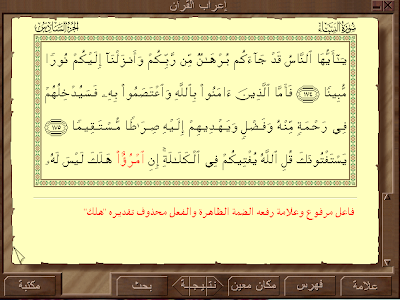 إعراب القرآن
سورة النساء
الجزء السادس
يَـٰٓأَيُّهَا ٱلنَّاسُ قَدْ جَآءَكُم بُرْهَـٰنٌ مِّن رَّبِّكُمْ وَأَنزَلْنَآ إِلَيْكُمْ نُورًا
مُّبِينًا ١٧٤ فَأَمَّا ٱلَّذِينَ ءَامَنُوا۟ بِٱللَّهِ وَٱعْتَصَمُوا۟ بِهِۦ فَسَيُدْخِلُهُمْ
فِى رَحْمَةٍ مِّنْهُ وَفَضْلٍ وَيَهْدِيهِمْ إِلَيْهِ صِرَٰطًا مُّسْتَقِيمًا ١٧٥
يَسْتَفْتُونَكَ قُلِ ٱللَّهُ يُفْتِيكُمْ فِى ٱلْكَلَـٰلَةِ ۚ إِنِ ٱمْرُؤٌا۟ هَلَكَ لَيْسَ لَهُۥ
فاعل مرفوع وعلامة رفعه الضمة الظاهرة والفعل محذوف تقديره "هلك"
علامة
فهرس
مكان معين
نتيجة
بحث
مكتبة